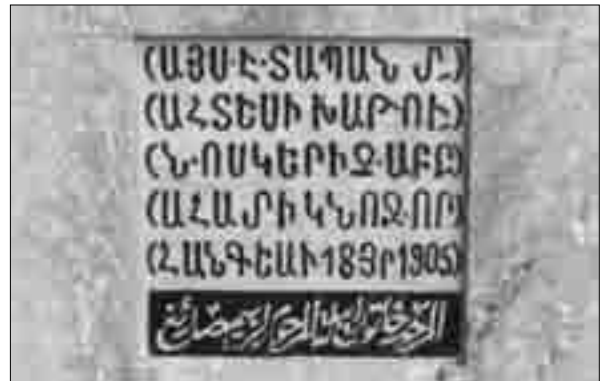 (ԱՅՍ·Է·ՏԱՊԱՆ Մ.)
(ԱՀՏԵՍԻ ԽԱԹՈՒ)
(Ն·ՈՍԿԵՐԻՉ·ԱԲՐ)
(ԱՀԱՄԻ ԿՆՈՋ·ՈՐ)
(ՀԱՆԳԵԱԻ·18ՅՐ1905)